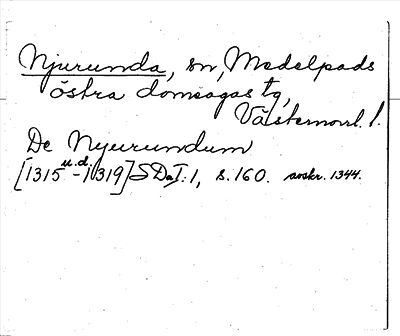 Njurunda, sn, Medelpads
östra domsagas tg,
Västernorrl. l.
De Nyurundum
[1315 u.d. -1319] SDns I: 1, s. 160. avskr. 1344.